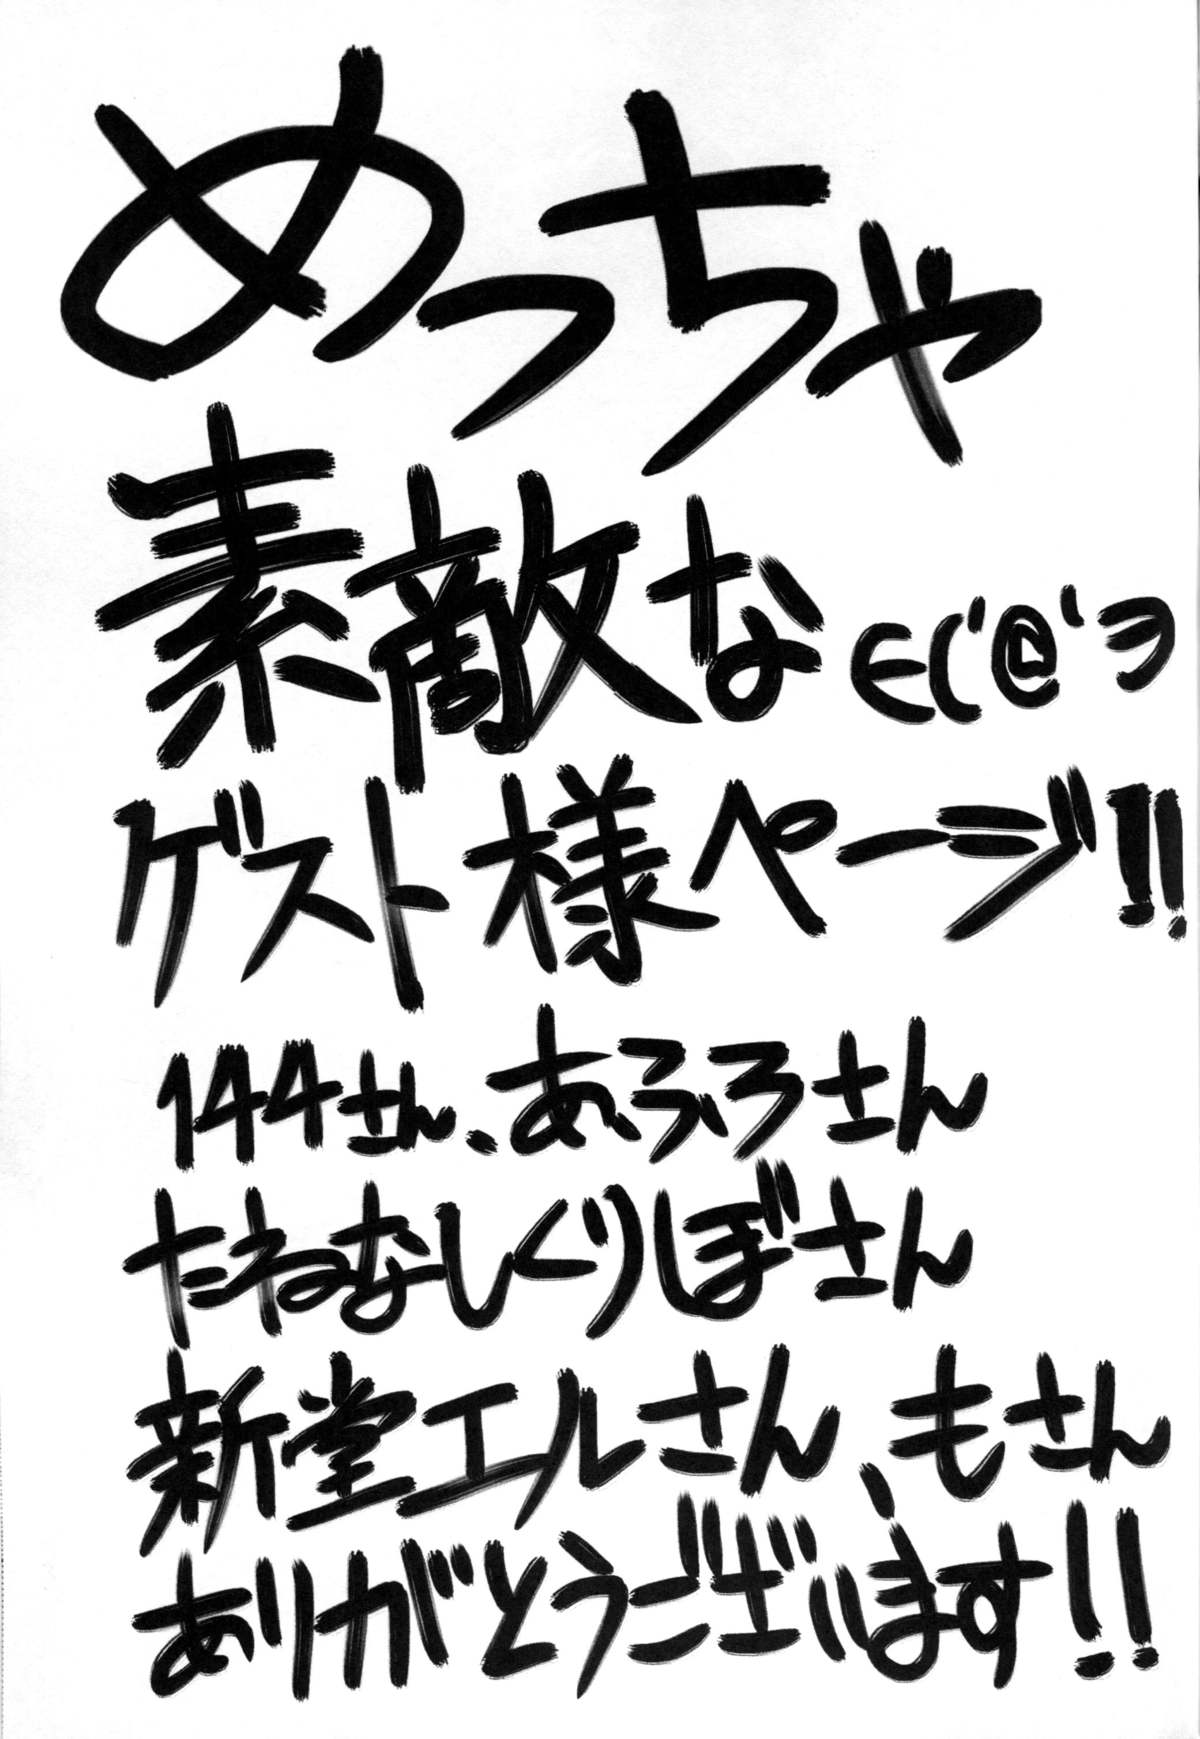 めっちゃ
素敵な∈(‘@‘ヨ
ゲスト様ページ!!
144さん、あふろさん
たねなしくりぼさん
新堂エルさん、もさん
ありがとうございます!!